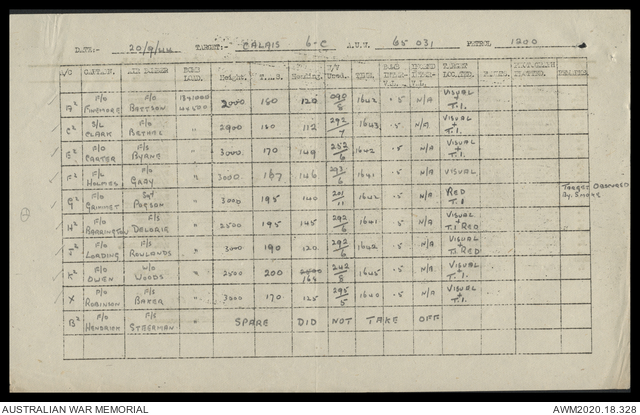 DATE:- 20/9/44 TARGET:- CALAIS 6-C A.U.W. 65 031 PETROL 1200
A/C CAPTAIN. AIR BOMBER BOMB LOAD. Height. T.A.S. Heading. W/V Used. TIME. TARGET LOCATED. REMARKS
A² F/O FINEMORE F/O BATTSON 2000 150 120 1642 .5 N/A VISUAL + T.I.
C² S/L CLARK F/O BETHEL " 2900 150 112 292/7 1643 .5 N/A VISUAL + T.I.
E² F/O CARTER F/S BYRNE " 3000 170 149 252/6 1642 .5 N/A VISUAL + T.I.
F² F/O HOLMES F/O GRAY " 3000 167 146 293/6 1641 .5 N/A VISUAL
G² F/O GRIMMET Sgt " 3000 195 140 201/11 1642 .5 N/A RED T.I TARGET OBSCURED By SMOKE
H² F/O BARRINGTON F/S DELORIE " 2500 195 145 292/6 1641 .5 N/A VISUAL + T.I RED
F/O LORDING F/S ROWLANDS " 3000 190 120 292/6 1642 .5 N/A VISUAL + T.I RED
F/O OWEN W/O WOODS " 2500 200 164 242/8 1645 .5 N/A VISUAL + T.I.
X P/O ROBINSON F/S BAKER " 3000 170 125 295/5 1640 .5 N/A VISUAL + T.I.
B² F/O HENDRICK F/S STEERMAN " SPARE DID NOT TAKE OFF
AUSTRALIAN WAR MEMORIAL AWM2020.18.328